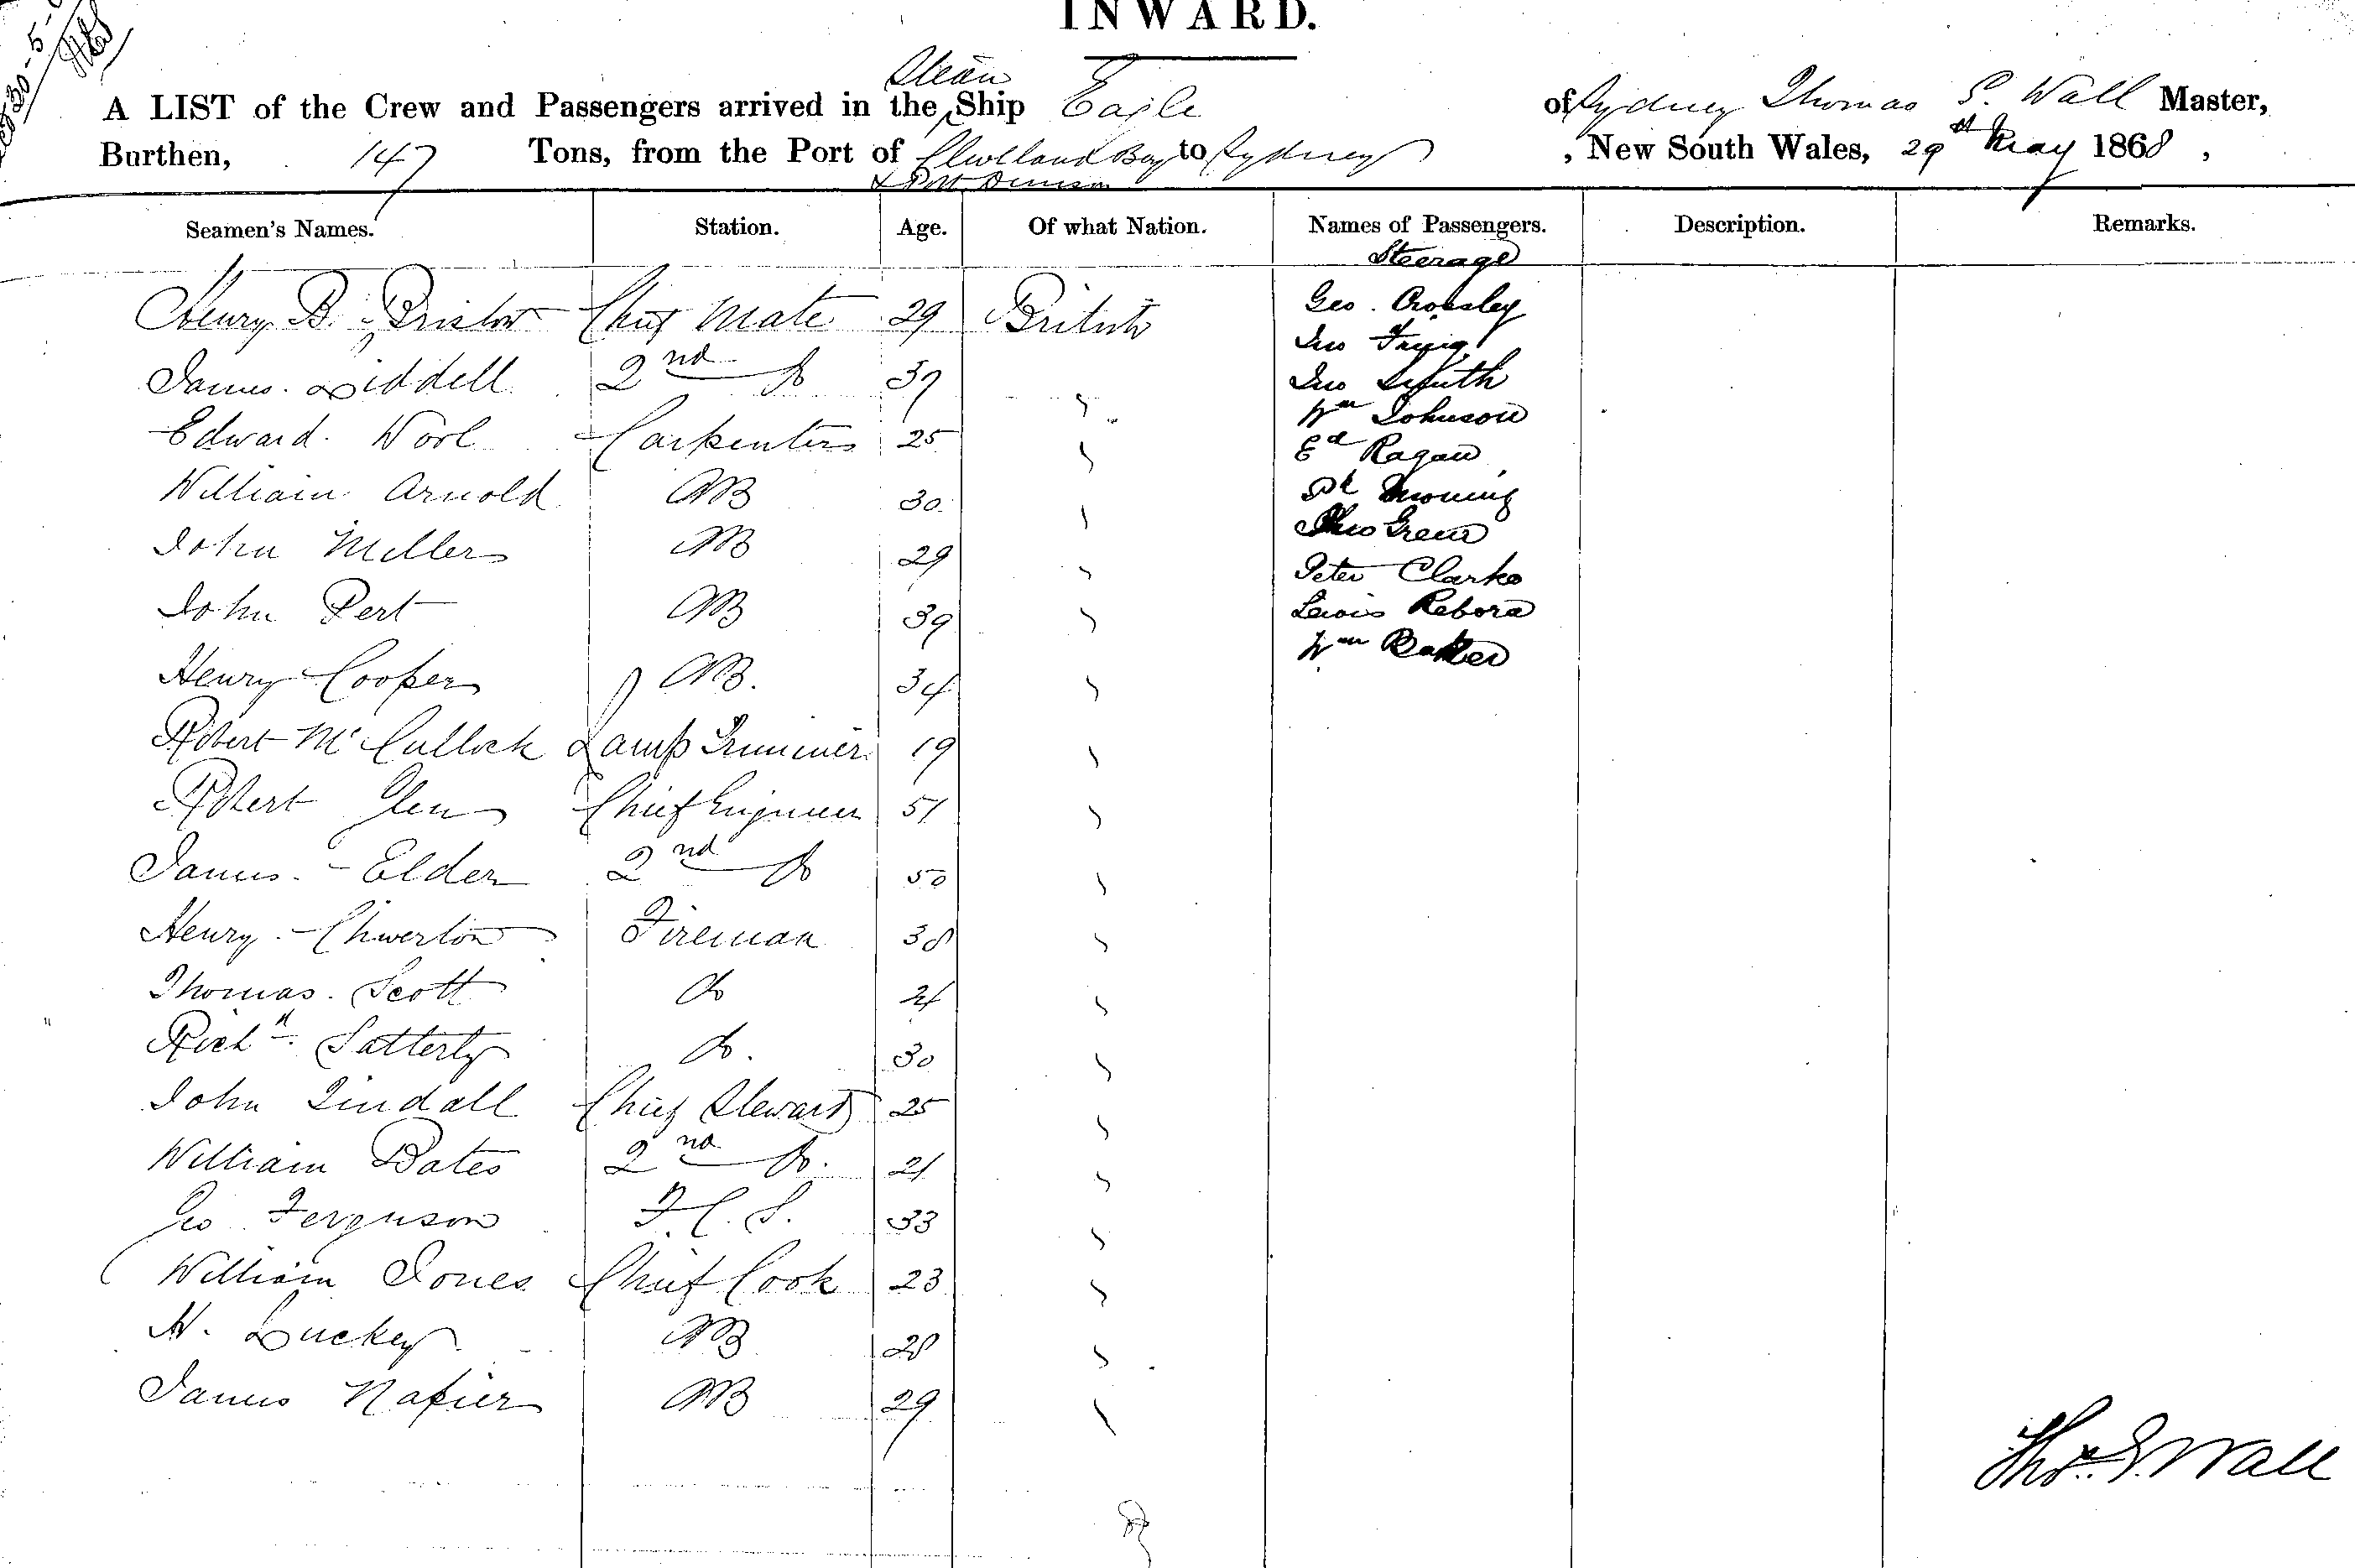 INWARD.
Steam
A LIST of the Crew and Passengers arrived in the Ship Eagle of Sydney Thomas S. Wall Master,
Burthen, 147 Tons, from the Port of Cleveland Bay to Sydney , New South Wales, 29th May 1868 ,
& Port Denison
Seamen's Names. Station. Age. Of what Nation. Names of Passengers. Description. Remarks.
Steerage
Henry B. Bristow Chief Mate 29 British Geo. Crossley
James. Liddell 2nd Do 37 Jno
Edward. Worl Carpenter 25 Jno Smith
William Arnold AB 30 Wm Johnson
John Miller AB 29 Ed Ragan
John Pert AB 39 Pk
Henry Cooper AB. 34 Green
Robert McCulloch Lamp Trimmer 19 Peter Clarke
Robert Glen Chief Engineer 51 Lewis Rebora
James. Elder 2nd Do 50 Wm Baker
Henry. Chiverton Fireman 38
Thomas. Scott Do 21
Richd. Satterly Do. 30
John Tindall Chief Steward 25
William Bates 2nd Do. 21
Geo. Ferguson F.C.S. 33
William Jones Chief Cook 23
H. Luckey AB 28
James Napier AB 29
Thos. S. Wall